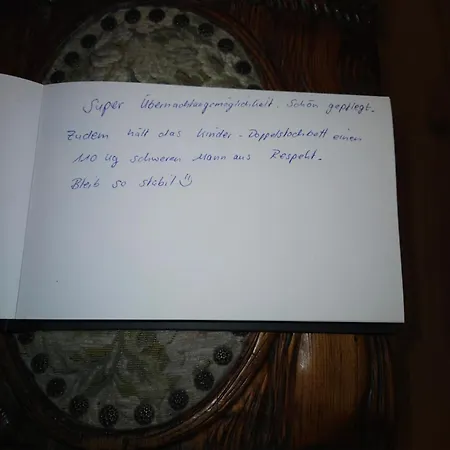 Super Übernachtungsmöglichkeit. Schön gepflegt.
Zudem hält das Kinder-Doppelstockbett einen
110 kg schweren Mann aus Respekt.
Bleib so stabil ☺